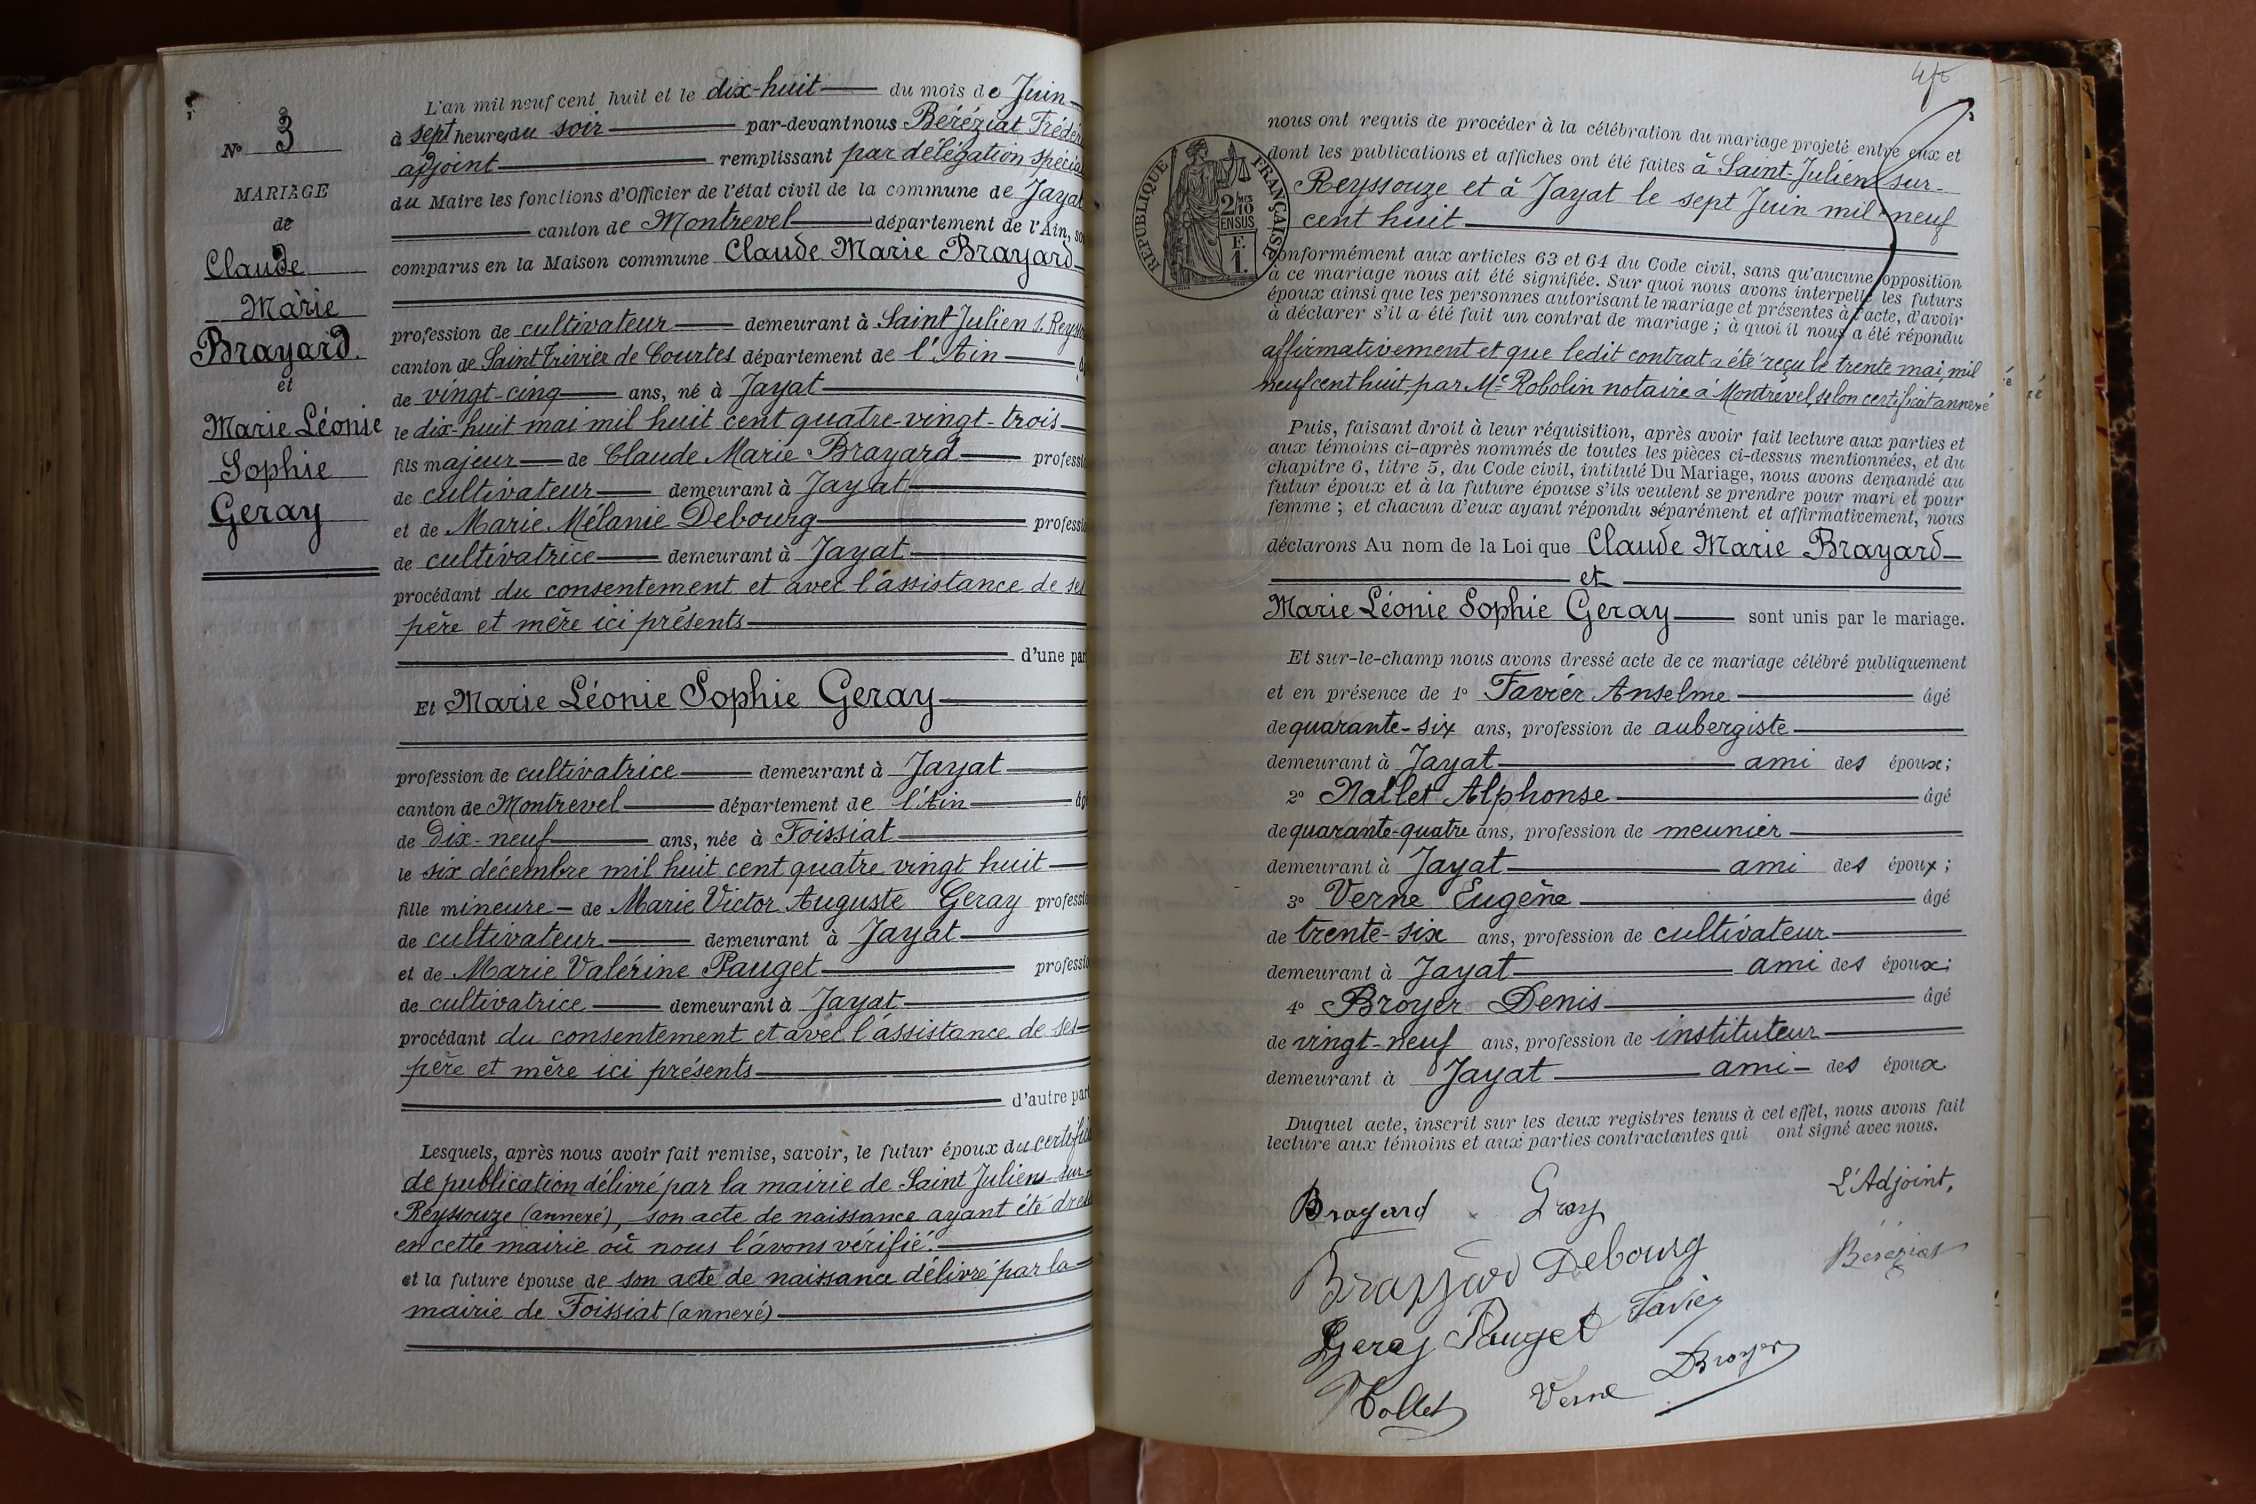 L'an mil neuf cent huit et le dix-huit du mois de Juin
à sept heures du soir par-devant nous Béréziat Frédér
adjoint remplissant par délégation spécia
du Maire les fonctions d'Officier de l'état civil de la commune de Jayat
canton de Montrevel département de l'Ain, so
comparus en la Maison commune Claude Marie Brayard
profession de cultivateur demeurant à Saint Julien s. Reysso
canton de Saint Trivier de Courtes département de l'Ain
de vingt-cinq ans, né à Jayat
le dix-huit mai mil huit cent quatre-vingt-trois
fils majeur de Claude Marie Brayard professi
de cultivateur demeurant à Jayat
et de Marie Mélanie Debourg professi
de cultivatrice demeurant à Jayat
procédant du consentement et avec l'assistance de ses
père et mère ici présents
d'une par
Et Marie Léonie Sophie Geray
profession de cultivatrice demeurant à Jayat
canton de Montrevel département de l'Ain âg
de dix-neuf ans, née à Foissiat
le six décembre mil huit cent quatre vingt huit
fille mineure de Marie Victor Auguste Geray professi
de cultivateur demeurant à Jayat
et de Marie Valérine Pauget professio
de cultivatrice demeurant à Jayat
procédant du consentement et avec l'assistance de ses
père et mère ici présents
d'autre part
Lesquels, après nous avoir fait remise, savoir, le futur époux du certifi
de publication délivré par la mairie de Saint Julien-sur-
Reyssouze (annexé), son acte de naissance ayant été dres
en cette mairie où nous l'avons vérifié.
et la future épouse de son acte de naissance délivré par la
mairie de Foissiat (annexé)
No 3
MARIAGE
de
Claude
Marie
Brayard.
et
Marie Léonie
Sophie
Geray
REPUBLIQUE FRANÇAISE
2/10
EN SUS
F.
1.
nous ont requis de procéder à la célébration du mariage projeté entre eux et
dont les publications et affiches ont été faites à Saint-Julien-sur-
Reyssouze et à Jayat le sept Juin mil neuf
cent huit
conformément aux articles 63 et 64 du Code civil, sans qu'aucune opposition
à ce mariage nous ait été signifiée. Sur quoi nous avons interpellé les futurs
époux ainsi que les personnes autorisant le mariage et présentes à l'acte, d'avoir
à déclarer s'il a été fait un contrat de mariage ; à quoi il nous a été répondu
affirmativement et que ledit contrat a été reçu le trente mai mil
neuf cent huit par Me Robolin notaire à Montrevel, selon certificat annexé
Puis, faisant droit à leur réquisition, après avoir fait lecture aux parties et
aux témoins ci-après nommés de toutes les pièces ci-dessus mentionnées, et du
chapitre 6, titre 5, du Code civil, intitulé Du Mariage, nous avons demandé au
futur époux et à la future épouse s'ils veulent se prendre pour mari et pour
femme ; et chacun d'eux ayant répondu séparément et affirmativement, nous
déclarons Au nom de la Loi que Claude Marie Brayard
et
Marie Léonie Sophie Geray sont unis par le mariage.
Et sur-le-champ nous avons dressé acte de ce mariage célébré publiquement
et en présence de 1o Favier Anselme âgé
de quarante-six ans, profession de aubergiste
demeurant à Jayat ami des époux;
2o Nallet Alphonse âgé
de quarante-quatre ans, profession de meunier
demeurant à Jayat ami des époux;
3o Verne Eugène âgé
de trente-six ans, profession de cultivateur
demeurant à Jayat ami des époux;
4o Broyer Denis âgé
de vingt-neuf ans, profession de instituteur
demeurant à Jayat ami des époux
Duquel acte, inscrit sur les deux registres tenus à cet effet, nous avons fait
lecture aux témoins et aux parties contractantes qui ont signé avec nous.
Brayard Gray L'Adjoint,
Brayard Debourg Béréziat
Geray Pauget Favier
Nallet Verne Broyer